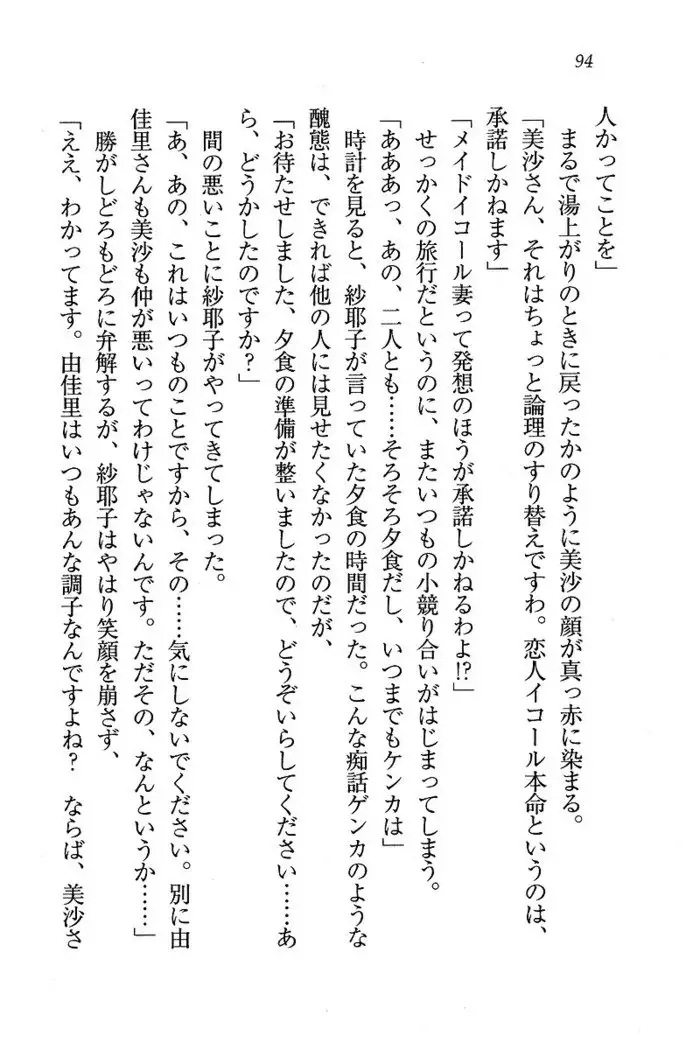 94
人かってことを」
　まるで湯上がりのときに戻ったかのように美沙の顔が真っ赤に染まる。
「美沙さん、それはちょっと論理のすり替えですわ。恋人イコール本命というのは、
承諾しかねます」
「メイドイコール妻って発想のほうが承諾しかねるわよ!?」
　せっかくの旅行だというのに、またいつもの小競り合いがはじまってしまう。
「あああっ、あの、二人とも……そろそろ夕食だし、いつまでもケンカは」
　時計を見ると、紗耶子が言っていた夕食の時間だった。こんな痴話ゲンカのような
醜態は、できれば他の人には見せたくなかったのだが、
「お待たせしました、夕食の準備が整いましたので、どうぞいらしてください……あ
ら、どうかしたのですか？」
　間の悪いことに紗耶子がやってきてしまった。
「あ、あの、これはいつものことですから、その……気にしないでください。別に由
佳里さんも美沙も仲が悪いってわけじゃないんです。ただその、なんというか……」
　勝がしどろもどろに弁解するが、紗耶子はやはり笑顔を崩さず、
「ええ、わかってます。由佳里はいつもあんな調子なんですよね？　ならば、美沙さ